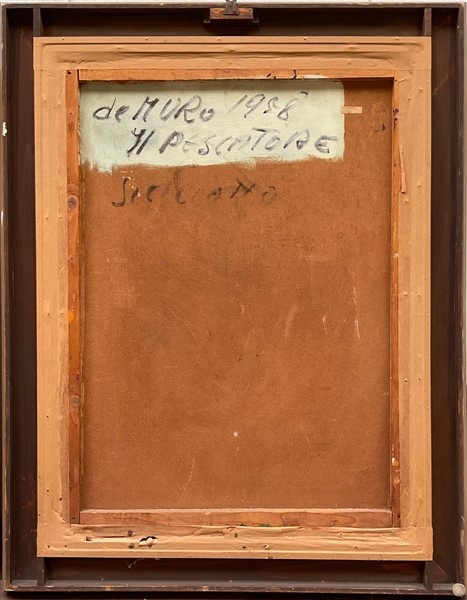 de MURO 1958
Il PESCATORE
Siciliano